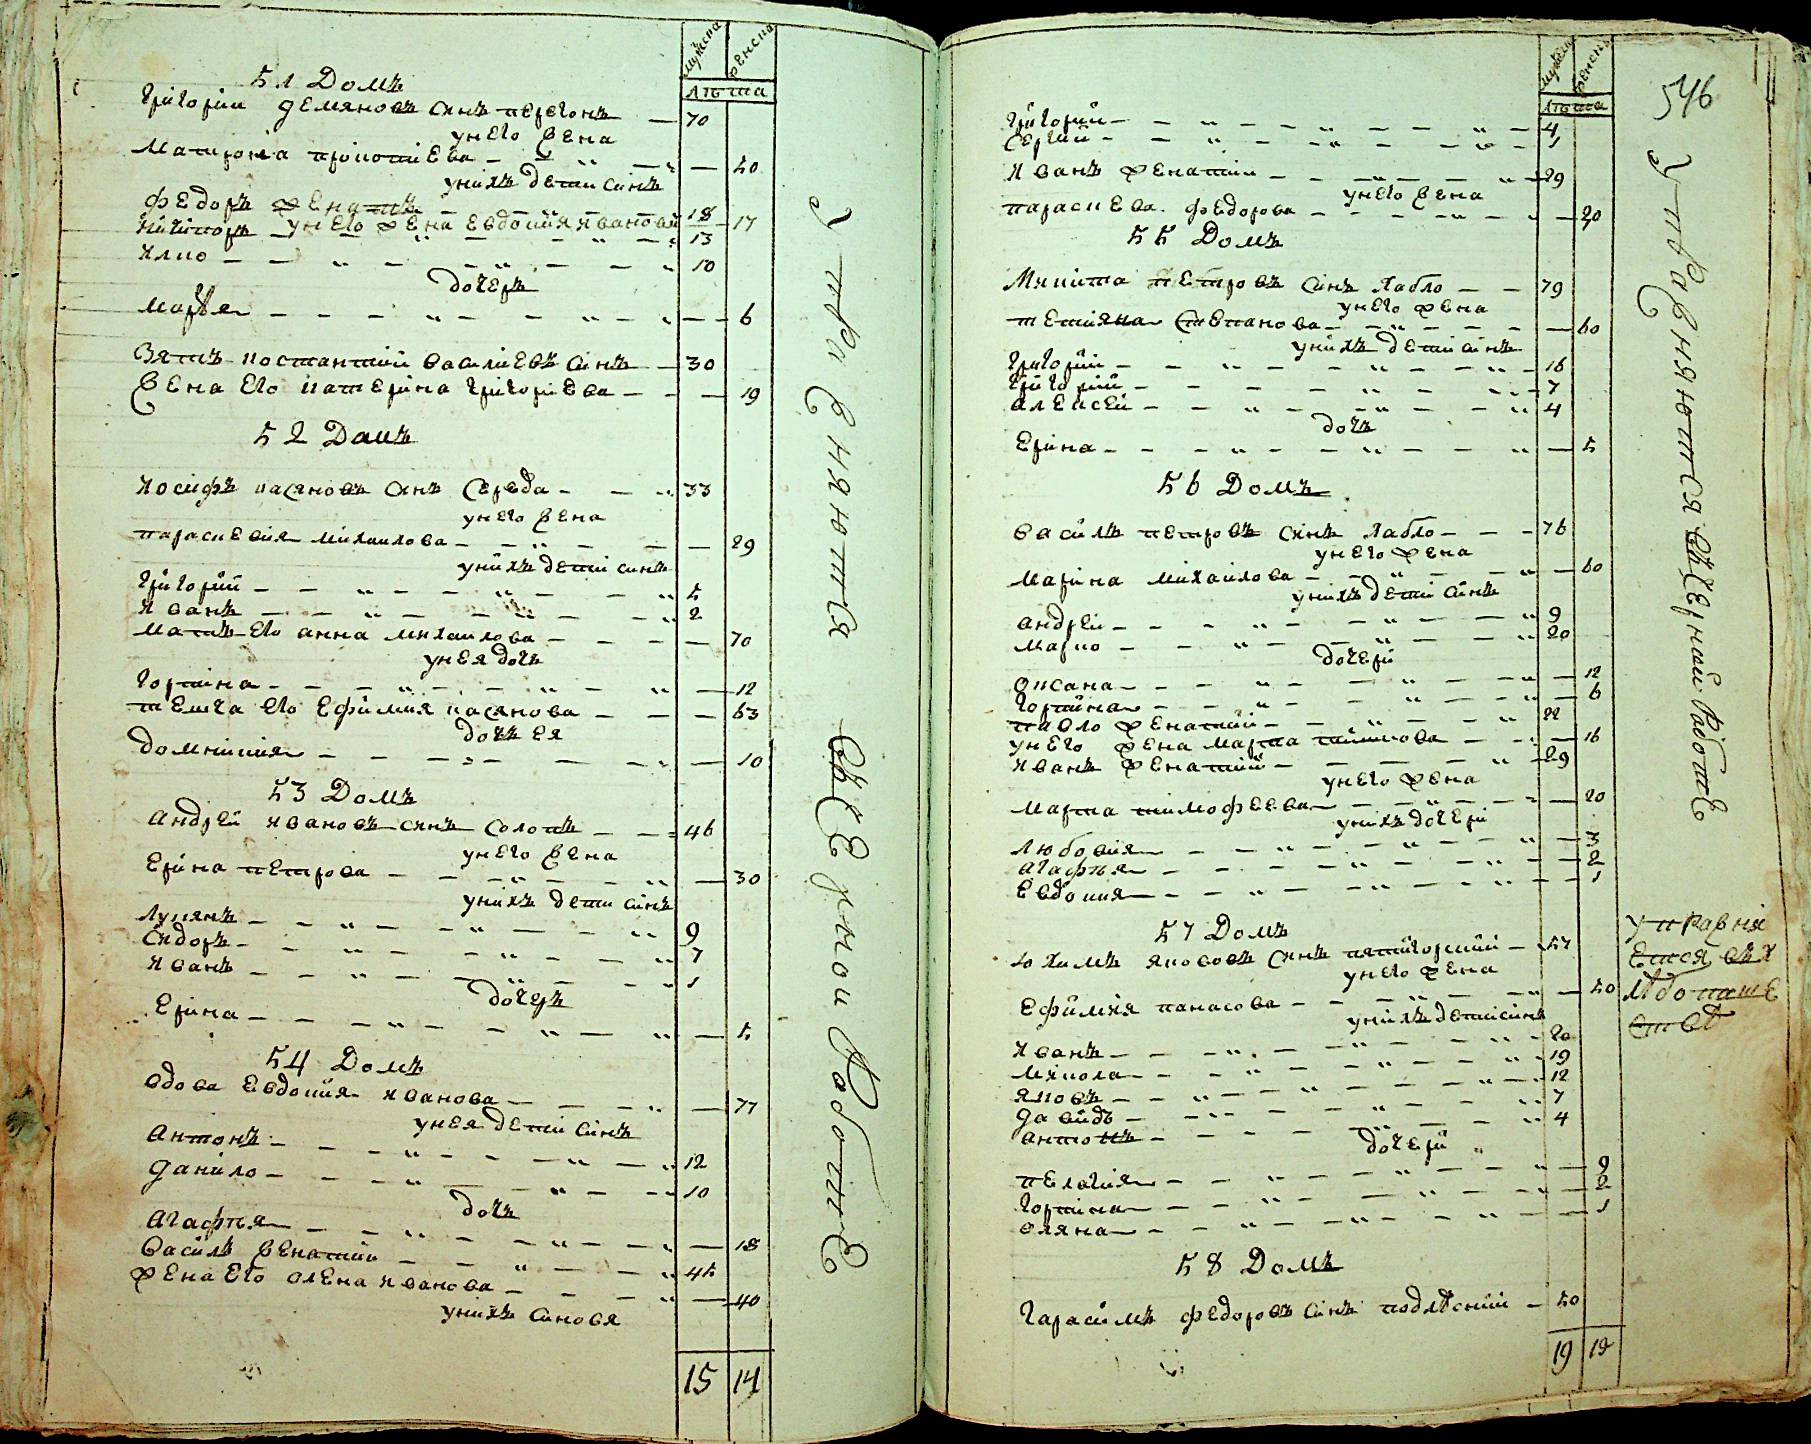 мужеска
женска
лѣта
51 Домъ
Григорий Демяновъ синъ — 70
у него жена
Матрона — — 40
у нихъ дети синъ
Федоръ женатъ — 18
у него жена Евдокия Иванова — 17
Никифоръ — 13
Илко — 10
дочеръ
Марья — 6
Зятъ Костантий Василиевъ синъ — 30
Жена его Катерина Григориева — 19
52 Домъ
Иосифъ Касяновъ синъ Середа — 33
у него жена
Параскевия Михаилова — 29
у нихъ дети синъ
Григорий — 5
Иванъ — 2
Матъ его Анна Михаилова — 70
у нея дочъ
Горпина — 12
теща его Ефимия Касянова — 63
дочъ ея
Домникия — 10
53 Домъ
Андрей Ивановъ синъ — 46
у него жена
Ерина Петрова — 30
у нихъ дети синъ
Лукянъ — 9
Сидоръ — 7
Иванъ — 1
дочеръ
Ерина — 5
54 Домъ
вдова Евдокия Иванова — 77
у нея дети синъ
Антонъ — 12
Данило — 10
дочъ
Агафья — 18
Василъ женатий — 45
жена его Олена Иванова — 40
у нихъ синовя
15 14
Упражняются
546
мужеска
женска
лѣта
Григорий — 4
Сергий — 1
Иванъ женатий — 29
у него жена
Параскева Федорова — 20
55 Домъ
Микита Петровъ синъ — 79
у него жена
Степанова — 60
у нихъ дети синъ
Григорий — 16
Григорий — 7
Алексей — 4
дочъ
Ерина — 5
56 Домъ
Василъ Петровъ синъ — 76
у него жена
Марина Михаилова — 60
у нихъ дети синъ
Андрей — 9
Марко — 20
дочери
Оксана — 12
Горпина — 6
Павло женатий — 22
у него жена Марта — 16
Иванъ женатий — 29
у него жена
Марта Тимофеева — 20
у нихъ дочери
Любовия — 3
Агафья — 2
Евдокия — 1
57 Домъ
Юхимъ Якововъ синъ — 57
у него жена
Ефимия Панасова — 50
у нихъ дети синъ
Иванъ — 20
Микола — 19
Яковъ — 12
Давидъ — 7
Антонъ — 4
дочери
Пелагия — 9
Горпина — 2
Оляна — 1
58 Домъ
Гарасимъ Федоровъ синъ — 50
19 19
Упражняются
Упражня
ется въ х
лѣбопаше
ствѣ